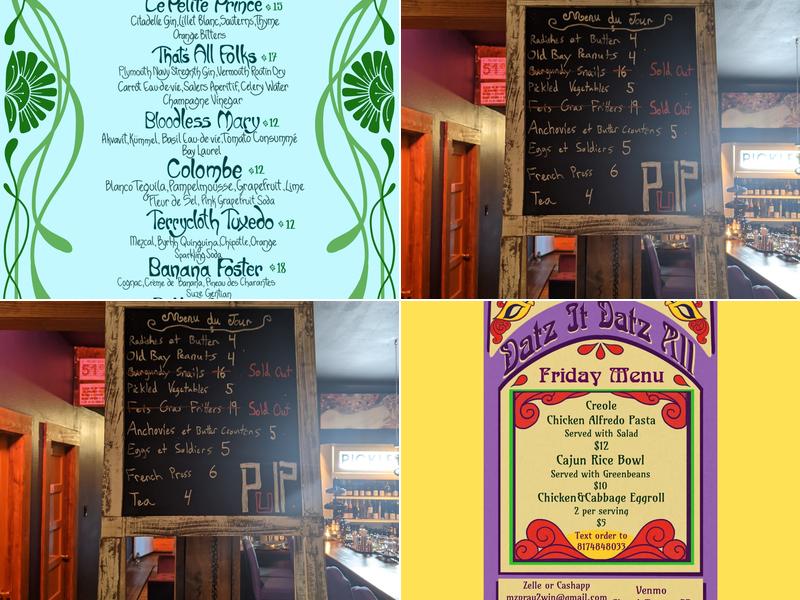 Le Petite Prince $15
Citadelle Gin, Lillet Blanc, Sauterns, Thyme
Orange Bitters
That's All Folks $17
Plymouth Navy Strength Gin, Vermouth Routin Dry
Carrot Eau-de-vie, Salers Aperitif, Celery Water
Champagne Vinegar
Bloodless Mary $12
Akvavit, Kümmel, Basil Eau-de vie, Tomato Consummé
Bay Laurel
Colombe $12
Blanco Tequila, Pampelmousse, Grapefruit, Lime
Fleur de Sel, Pink Grapefruit Soda
Terrycloth Tuxedo $12
Mezcal, Byrrh Quinquina, Chipotle, Orange
Sparkling Soda
Banana Foster $18
Cognac, Crème de Banana, Pineau des Charantes
Suze Gentian
Menu du Jour
Radishes et Butter 4
Old Bay Peanuts 4
Burgundy Snails 16 Sold Out
Pickled Vegetables 5
Fois Gras Fritters 19 Sold Out
Anchovies et Butter Croutons 5
Eggs et Soldiers 5
French Press 6
Tea 4
PUlP
PICKLE
Menu du Jour
Radishes et Butter 4
Old Bay Peanuts 4
Burgundy Snails 16 Sold Out
Pickled Vegetables 5
Fois Gras Fritters 19 Sold Out
Anchovies et Butter Croutons 5
Eggs et Soldiers 5
French Press 6
Tea 4
PUlP
PICKLE
Datz It Datz All
Friday Menu
Creole
Chicken Alfredo Pasta
Served with Salad
$12
Cajun Rice Bowl
Served with Greenbeans
$10
Chicken&Cabbage Eggroll
2 per serving
$5
Text order to
8174848033
Zelle or Cashapp
mzpray2win@gmail.com
Venmo